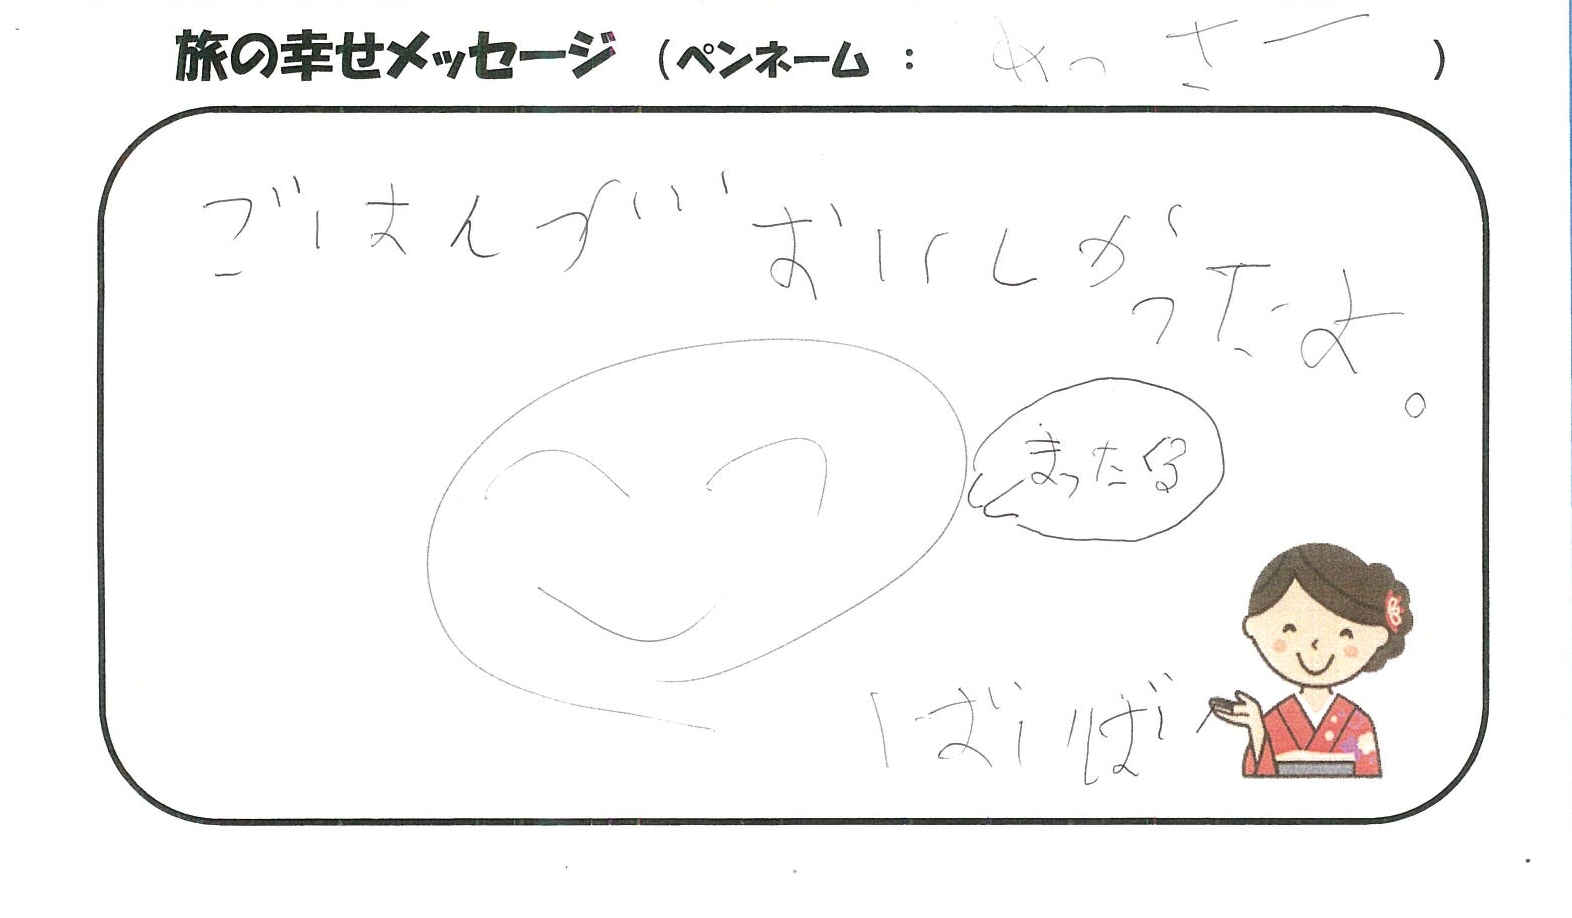 旅の幸せメッセージ （ペンネーム ： めっさー ）
ごはんが おいしかったよ。
まったくる
ばいばい